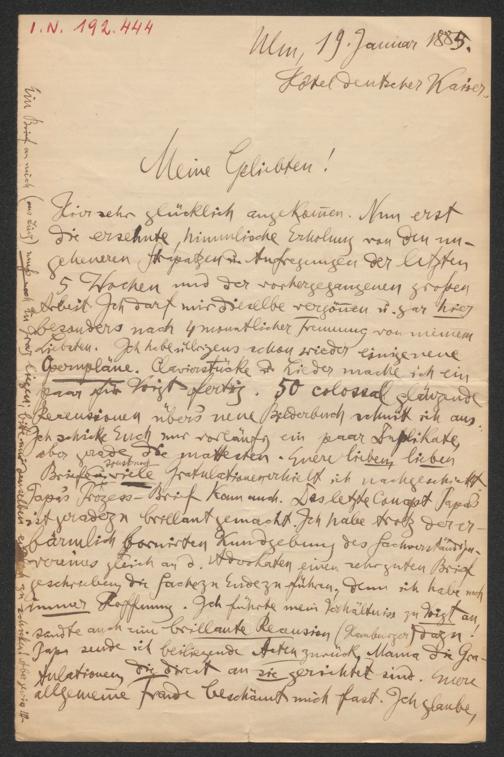 I.N. 192.444
Ulm, 19. Januar 1885.
Hôtel deutscher Kaiser.
Meine Geliebten!
Hier sehr glücklich angekom̄en. Nun erst
die ersehnte, himmlische Erholung von den un-
geheueren Strapatzen u. Aufregungen der letzten
5 Wochen und der vorhergegangenen großen
Arbeit. Ich darf mir dieselbe vergönnen u. gar hier
besonders nach 4 monatlicher Trennung von meinem
Liebsten. Ich habe übrigens schon wieder einige neue
Opernpläne. Clavierstücke u. Lieder mache ich ein
paar für Voigt fertig. 50 colossal glänzende
Recensionen über's neue Bilderbuch schnitt ich aus.
Ich schicke Euch nur vorläufig ein paar Duplikate,
aber grade die mattesten. Euere lieben, lieben
Briefe, viele Gratulationen erhielt ich nachgeschickt
Papa's Prozess-Brief kam auch. Das letzte Concept Papa's
ist geradezu brillant gemacht. Ich habe trotz der er-
bärmlich bornirten Kundgebung des Sachverständigen-
vereines gleich an d. Advokaten einen sehr guten Brief
geschrieben, die Sache zu Ende zu führen, denn ich habe noch
immer Hoffnung. Ich führte mein Verhältniss zu Voigt an,
sandte auch eine brillante Recension (Hamburger) dazu!
Papa sende ich beiliegende Acten zurück, Mama die Gra-
tulationen, die direct an sie gerichtet sind. Euere
allgemeine Freude beschämt mich fast. Ich glaube,
Ein Brief an mich